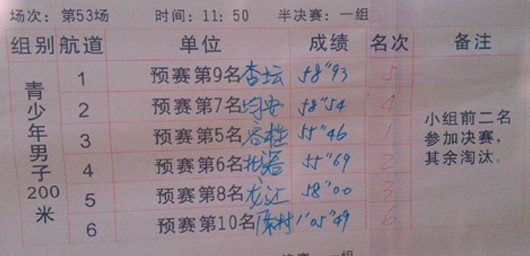 场次：第53场 时间：11：50 半决赛：一组
组别 航道 单位 成绩 名次 备注
青少年男子200米
1 预赛第9名 杏坛 58"93 5
2 预赛第7名 均安 58"54 4
3 预赛第5名 容桂 55"46 1
4 预赛第6名 55"69 2
5 预赛第8名 龙江 58"00 3
6 预赛第10名 陈村 1'05"49 6
小组前二名
参加决赛，
其余淘汰。